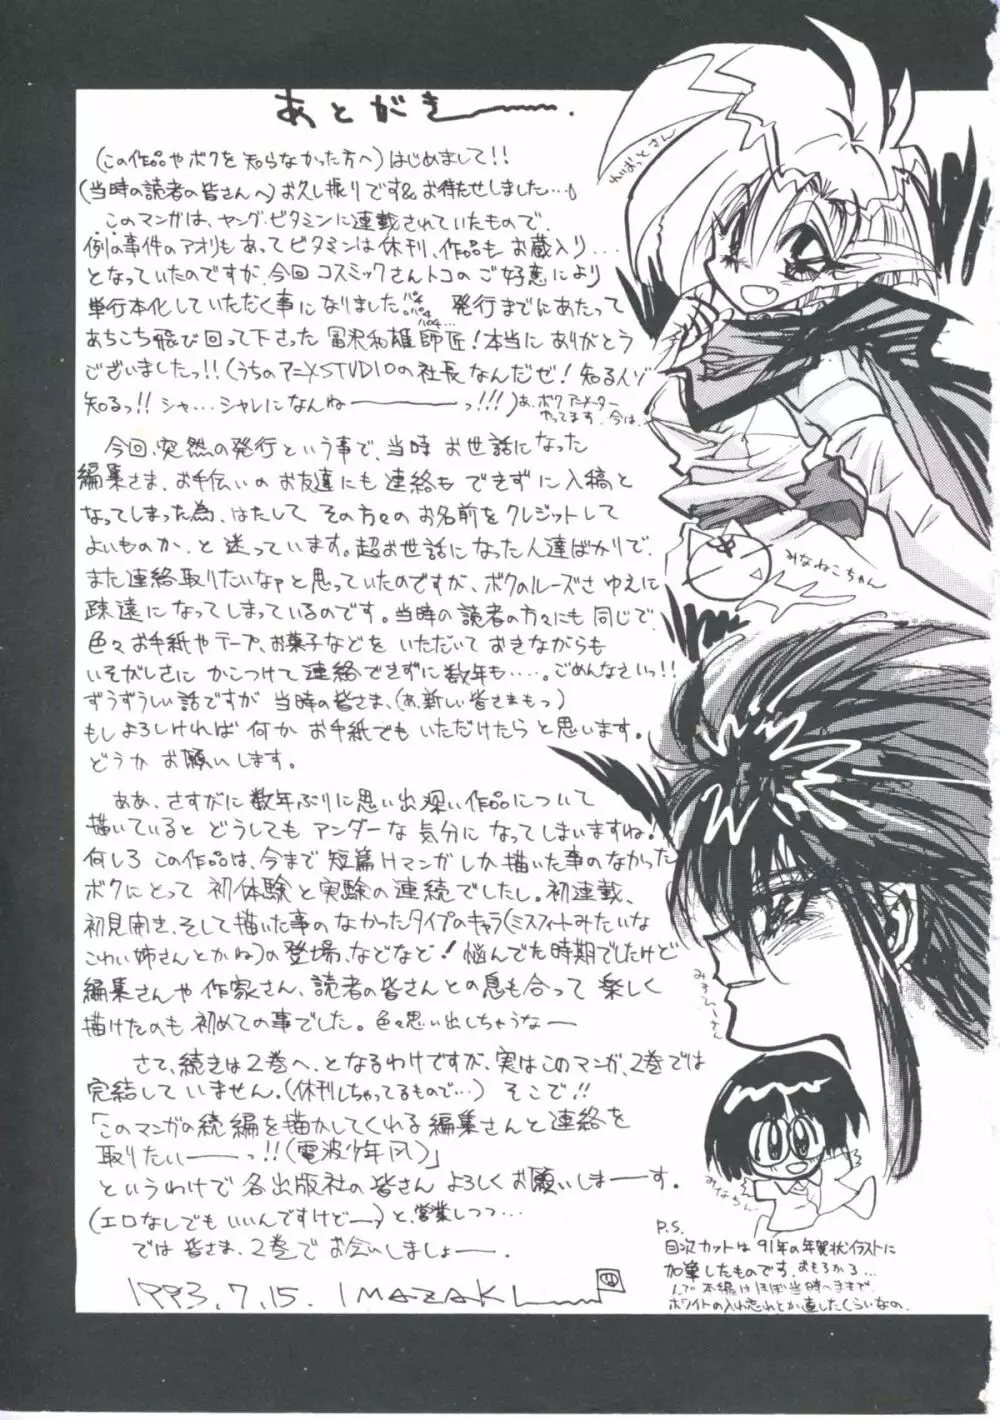 あとがき———.
(この作品やボクを知らなかった方へ)はじめまして!!
(当時の読者の皆さんへ)お久し振りです&お待たせしました…♪
このマンガは、ヤング・ビタミンに連載されていたもので、
例の事件のアオリもあってビタミンは休刊、作品もお蔵入り…
となっていたのですが、今回コスミックさんトコのご好意により
単行本化していただく事になりました。パチパチパチ… 発行までにあたって
あちこち飛び回って下さった冨沢和雄師匠!本当にありがとう
ございましたっ!!(うちのアニメSTUDIOの社長なんだぜ!知る人ゾ
知るっ!!シャ…シャレになんねー———っ!!!)あ、ボクアニメーター
やってます、今は。
今回、突然の発行という事で、当時お世話になった
編集さま、お手伝いのお友達にも連絡もできずに入稿と
なってしまった為、はたしてその方々のお名前をクレジットして
よいものか、と迷っています。超お世話になった人達ばかりで、
また連絡取りたいなァと思っていたのですが、ボクのルーズさゆえに
疎遠になってしまっているのです。当時の読者の方々にも同じで、
色々お手紙やテープ、お菓子などをいただいておきながらも
いそがしさにかこつけて連絡できずに数年も……。ごめんなさいっ!!
ずうずうしい話ですが当時の皆さま、(あ、新しい皆さまもっ)
もしよろしければ何かお手紙でもいただけたらと思います。
どうかお願いします。
ああ、さすがに数年ぶりに思い出深い作品について
描いているとどうしてもアンダーな気分になってしまいますね!
何しろこの作品は、今まで短篇Hマンガしか描いた事のなかった
ボクにとって初体験と実験の連続でしたし。初連載、
初見開き、そして描いた事のなかったタイプのキャラ(ミスフィートみたいな
こわい姉さんとかね)の登場、などなど!悩んでた時期でしたけど
編集さんや作家さん、読者の皆さんとの息も合って楽しく
描けたのも初めての事でした。色々思い出しちゃうなー
さて、続きは2巻へ、となるわけですが、実はこのマンガ、2巻では
完結していません。(休刊しちゃってるもので…)そこで!!
「このマンガの続編を描かしてくれる編集さんと連絡を
取りたいー——っ!!(電波少年風)」
というわけで各出版社の皆さんよろしくお願いしまーす。
(エロなしでもいいんですけどーっ)と、営業しつつ…
では皆さま、2巻でお会いしましょー——.
1993.7.15. IMAZAKI
れいおっとさん
みなねこちゃん
みなちん
P.S.
目次カットは91年の年賀状イラストに
加筆したものです。おもろかろ…
んで本編はほぼ当時のままで、
ホワイトの入れ忘れとか直したくらいなの。